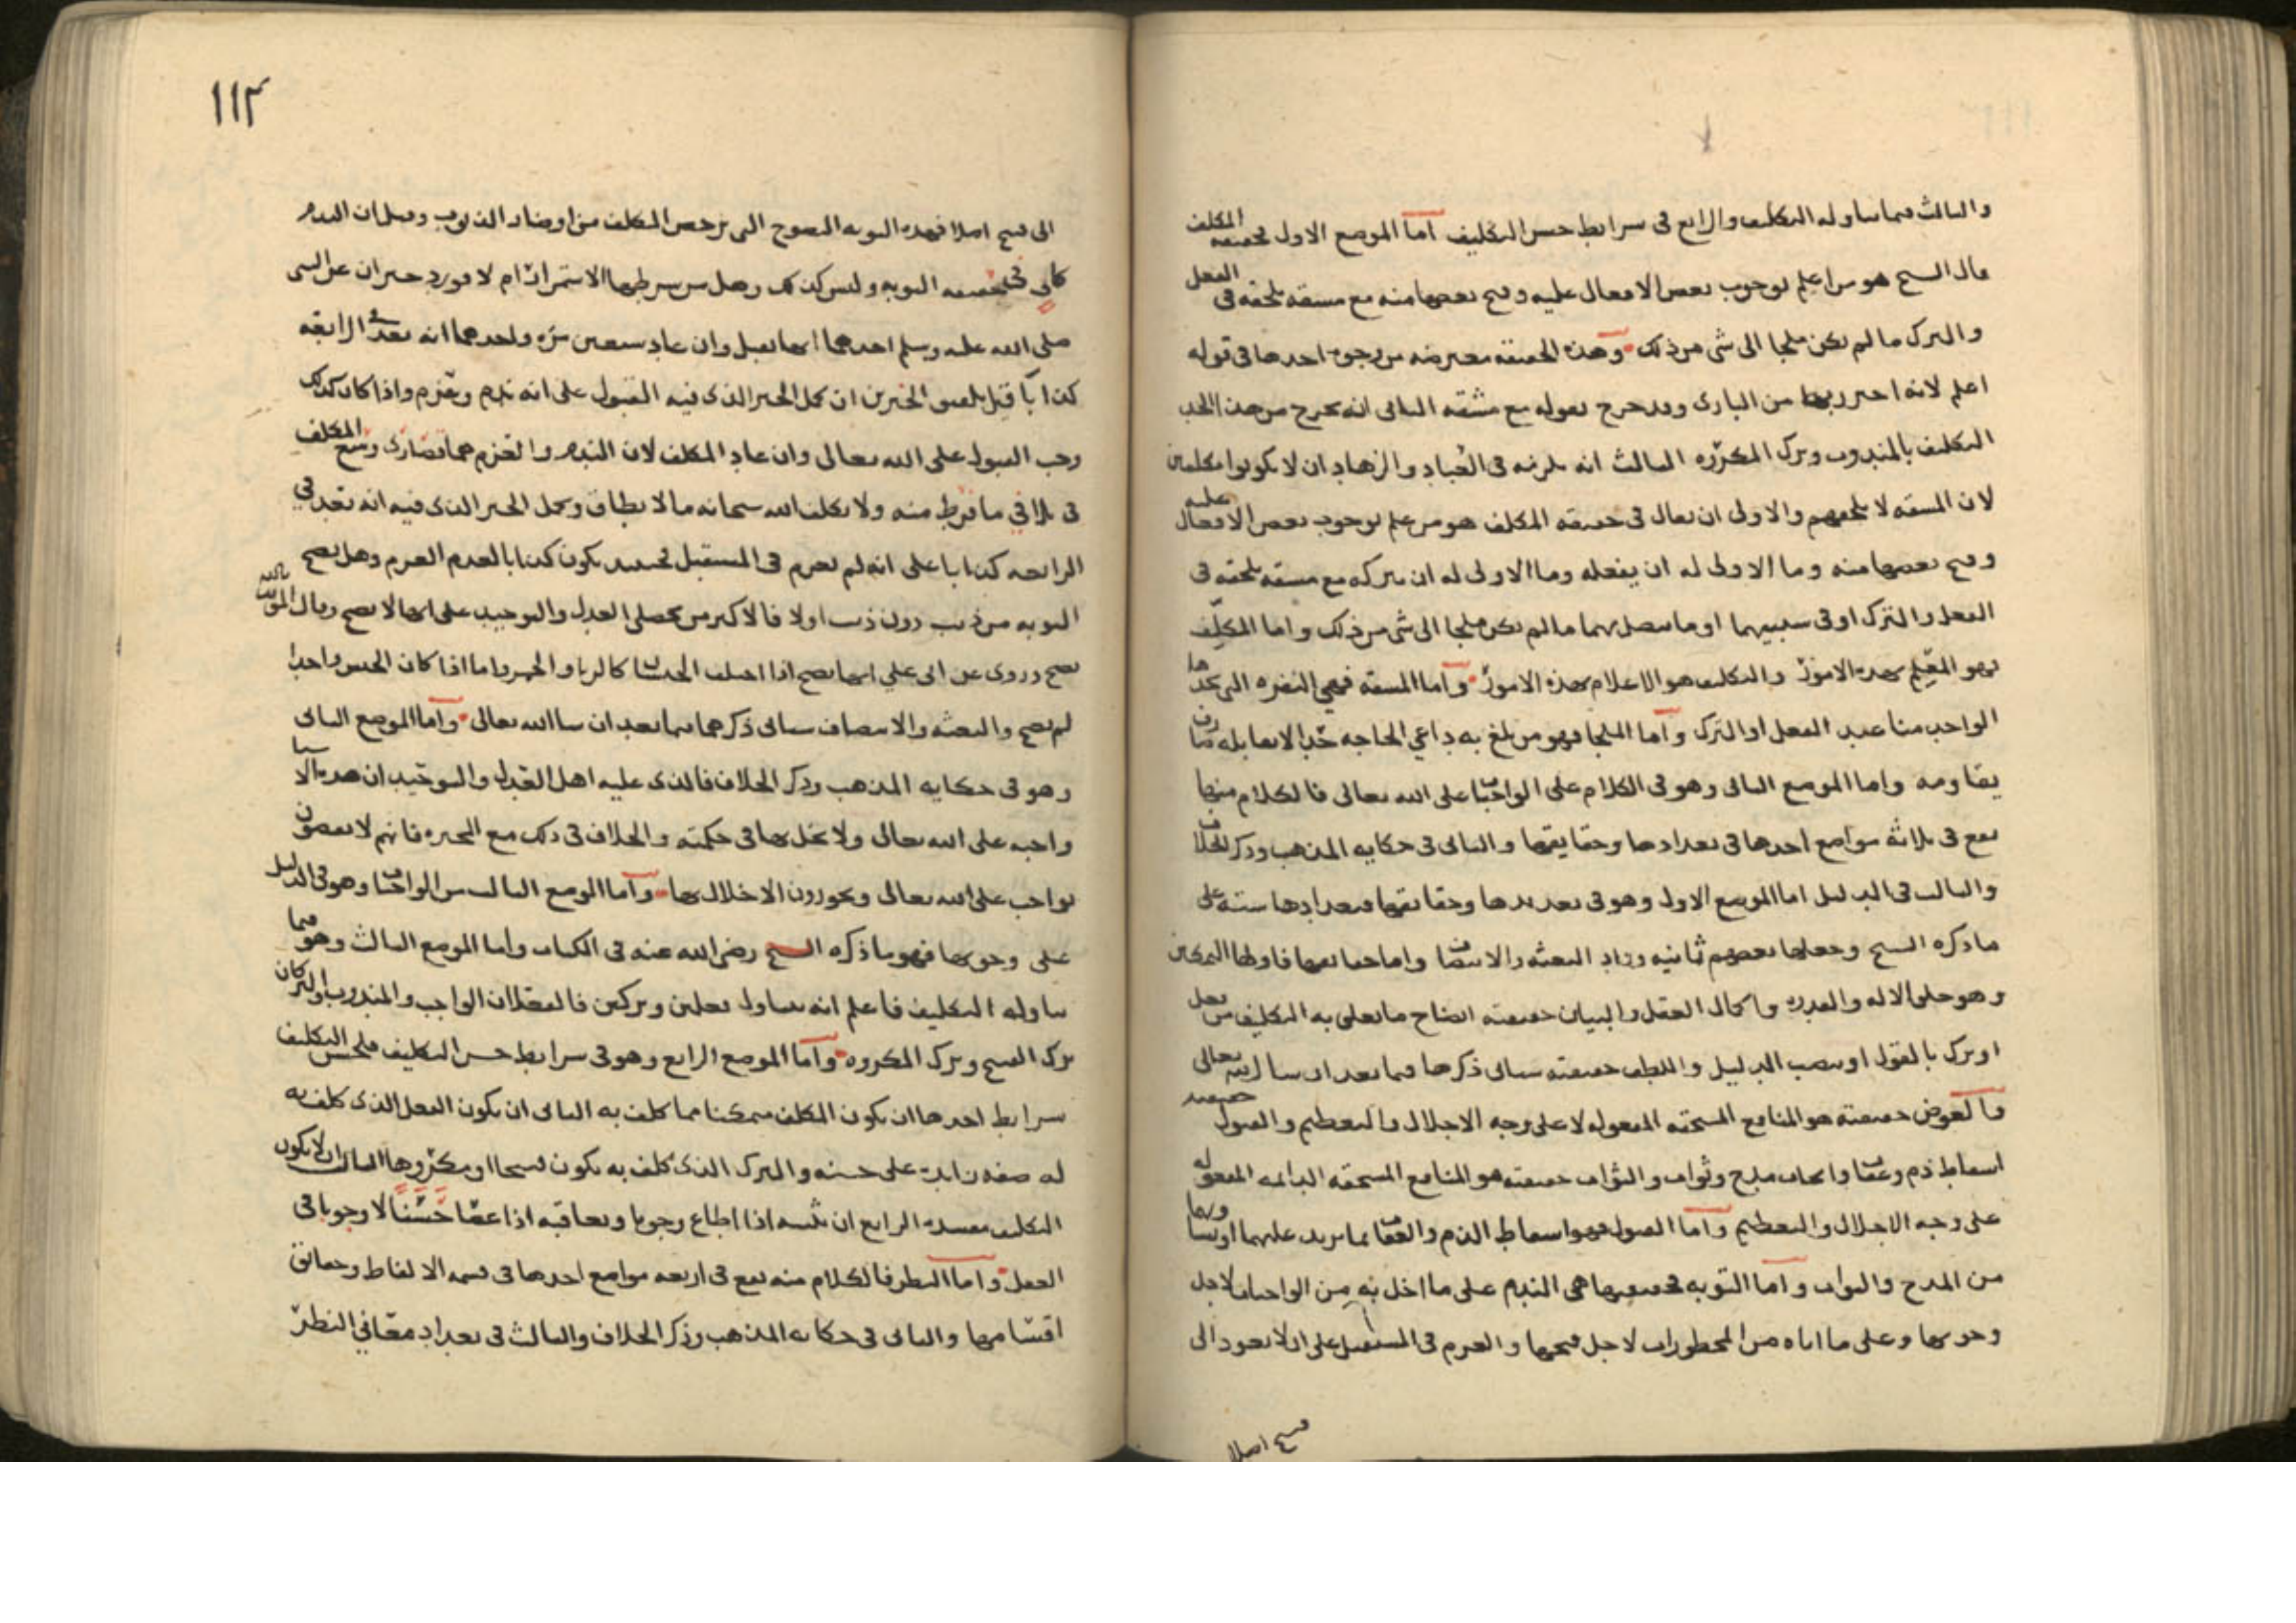 والثالث فيما يتناوله التكليف والرابع في شرايط حسن التكليف اما الموضع الاول فحقيقة المكلف
قال الشيخ هو من اعلم بوجوب بعض الافعال عليه وقبح بعضها منه مع مشقة تلحقه في الفعل
والترك ما لم يكن ملجا الى شي من ذلك وهذه الحقيقة معترضة من وجوه احدها في قوله
اعلم لانه احترز بها من البارى وقد خرج بقوله مع مشقة الثاني انه يخرج من هذا الحد
التكليف بالمندوب وترك المكروه الثالث انه يلزمه في العباد والزهاد ان لا يكونوا مكلفين
لان المشقة لا تلحقهم والاولى ان يقال في حقيقة المكلف هو من علم بوجوب بعض الافعال عليه
وقبح بعضها منه وما الاولى له ان يفعله وما الاولى له ان يتركه مع مشقة تلحقه في
الفعل والترك او في سببيهما او ما يتصل بهما ما لم يكن ملجا الى شي من ذلك واما المكلِّف
فهو المعلم بهذه الامور والتكليف هو الاعلام بهذه الامور واما المشقة فهي النفرة التي يجدها
الواحد منا عند الفعل او الترك واما الملجا فهو من بلغ به داعي الحاجة حدا لا يقابله صارف
يقاومه واما الموضع الثاني وهو في الكلام على الواجبات على الله تعالى فالكلام منها
يقع في ثلاثة مواضع احدها في تعدادها وحقايقها والثاني في حكاية المذهب وذكر الخلاف
والثالث في الدليل اما الموضع الاول وهو في تعديدها وحقايقها فتعدادها ستة على
ما ذكره الشيخ وجعلها بعضهم ثمانية وزاد البعثة والانتصاف واما حقايقها فاولها التمكين
وهو خلق الالة والقدرة واكمال العقل والبيان حقيقته ايضاح ما يتعلق به التكليف من فعل
او ترك بالقول او نصب الدليل واللطف حقيقته سياتي ذكرها فيما بعد ان شا الله تعالى
والعوض حقيقته هو المنافع المستحقة المفعولة لا على وجه الاجلال والتعظيم والقبول حقيقته
اسقاط ذم وعقاب وايجاب مدح وثواب والثواب حقيقته هو المنافع المستحقة الدائمة المفعولة
على وجه الاجلال والتعظيم واما القبول فهو اسقاط الذم والعقاب بما يزيد عليهما او يساويهما
من المدح والثواب واما التوبة فحقيقتها هي الندم على ما اخل به من الواجبات لاجل
وجوبها وعلى ما اتاه من المحظورات لاجل قبحها والعزم في المستقبل على ان لا يعود الى
قبيح اصلا
١١٢
الى قبيح اصلا فهذه التوبة النصوح التي ترحض المكلف من اوضار الذنوب وقيل ان الندم
كاف في حقيقة التوبة وليس كذلك وهل من شرطها الاستمرار ام لا فورد خبران عن النبي
صلى الله عليه وسلم احدهما انها تقبل وان عاد سبعين مرة واحدهما انه بعد في الرابعة
كذابا قيل تلفيق الخبرين ان يحمل الخبر الذي فيه القبول على انه ندم وعزم واذا كان كذلك
وجب القبول على الله تعالى وان عاد المكلف لان الندم والعزم هما قصارى وسع المكلف
في تلافي ما فرط منه ولا يكلف الله سبحانه ما لا يطاق ويحمل الخبر الذي فيه انه يعد في
الرابعة كذابا على انه لم يعزم في المستقبل فحينئذ يكون كذابا لعدم العزم وهل تصح
التوبة من ذنب دون ذنب اولا فالاكثر من محصلي العدل والتوحيد على انها لا تصح وقال المويد بالله
تصح وروي عن ابي علي انها تصح اذا اختلف الجنسان كالربا والخمر واما اذا كان الجنس واحدا
لم تصح والبعثة والانتصاف سياتي ذكرهما فيما بعد ان شا الله تعالى واما الموضع الثاني
وهو في حكاية المذهب وذكر الخلاف فالذي عليه اهل العدل والتوحيد ان هذه الاشيا
واجبة على الله تعالى ولا يخل بها في حكمته والخلاف في ذلك مع المجبرة فانهم لا يقضون
بواجب على الله تعالى ويجوزون الاخلال بها واما الموضع الثالث من الواجبات وهو في الدليل
على وجوبها فهو ما ذكره الشيخ رضي الله عنه في الكتاب واما الموضع الثالث وهو فيما
يتناوله التكليف فاعلم انه يتناول فعلين وتركين فالفعلان الواجب والمندوب والتركان
ترك القبيح وترك المكروه واما الموضع الرابع وهو في شرايط حسن التكليف فلحسن التكليف
شرايط احدها ان يكون المكلف متمكنا مما كلف به الثاني ان يكون الفعل الذي كلف به
له صفة زايدة على حسنه والترك الذي كلف به يكون قبيحا او مكروها الثالث ان لا يكون
التكليف مفسدة الرابع ان يثيبه اذا اطاع وجوبا ويعاقبه اذا عصا حسنا لا وجوبا في
العقل واما النظر فالكلام منه يقع في اربعة مواضع احدها في قسمة الالفاظ وحقائق
اقسامها والثاني في حكاية المذهب وذكر الخلاف والثالث في تعداد معاني النظر